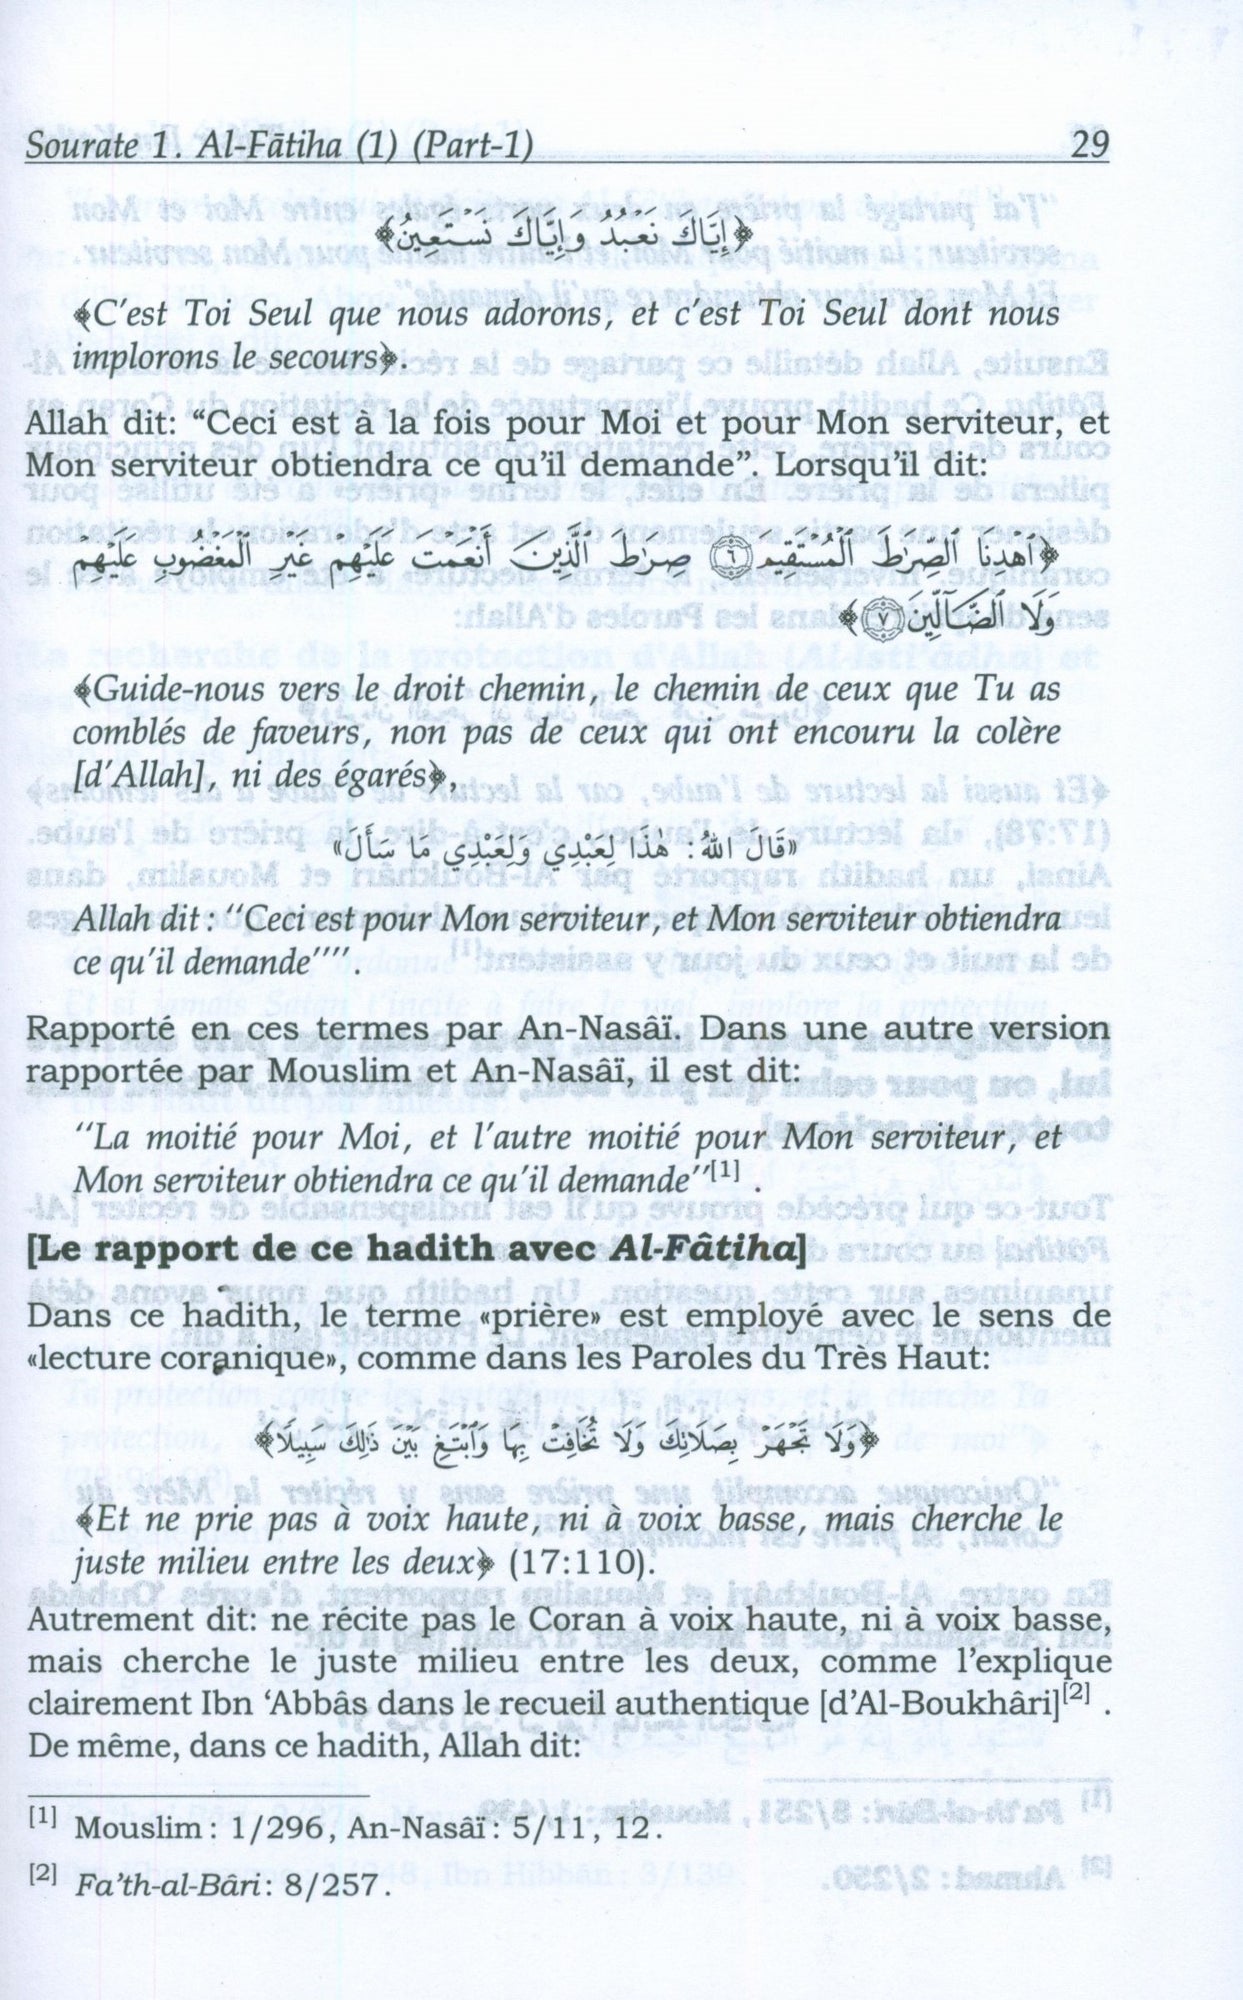 Sourate 1. Al-Fātiha (1) (Part-1) 29
﴿إِيَّاكَ نَعْبُدُ وَإِيَّاكَ نَسْتَعِينُ﴾
﴾C'est Toi Seul que nous adorons, et c'est Toi Seul dont nous
implorons le secours﴿.
Allah dit: “Ceci est à la fois pour Moi et pour Mon serviteur, et
Mon serviteur obtiendra ce qu'il demande”. Lorsqu'il dit:
﴿ٱهْدِنَا ٱلصِّرَٰطَ ٱلْمُسْتَقِيمَ ٦ صِرَٰطَ ٱلَّذِينَ أَنْعَمْتَ عَلَيْهِمْ غَيْرِ ٱلْمَغْضُوبِ عَلَيْهِمْ
وَلَا ٱلضَّآلِّينَ ٧﴾
﴾Guide-nous vers le droit chemin, le chemin de ceux que Tu as
comblés de faveurs, non pas de ceux qui ont encouru la colère
[d'Allah], ni des égarés﴿,
«قَالَ اللهُ: هَذَا لِعَبْدِي وَلِعَبْدِي مَا سَأَلَ»
Allah dit : “Ceci est pour Mon serviteur, et Mon serviteur obtiendra
ce qu'il demande””.
Rapporté en ces termes par An-Nasâï. Dans une autre version
rapportée par Mouslim et An-Nasâï, il est dit:
“La moitié pour Moi, et l'autre moitié pour Mon serviteur, et
Mon serviteur obtiendra ce qu'il demande”[1] .
[Le rapport de ce hadith avec Al-Fâtiha]
Dans ce hadith, le terme «prière» est employé avec le sens de
«lecture coranique», comme dans les Paroles du Très Haut:
﴿وَلَا تَجْهَرْ بِصَلَاتِكَ وَلَا تُخَافِتْ بِهَا وَٱبْتَغِ بَيْنَ ذَٰلِكَ سَبِيلًا﴾
﴾Et ne prie pas à voix haute, ni à voix basse, mais cherche le
juste milieu entre les deux﴿ (17:110).
Autrement dit: ne récite pas le Coran à voix haute, ni à voix basse,
mais cherche le juste milieu entre les deux, comme l'explique
clairement Ibn ‘Abbâs dans le recueil authentique [d'Al-Boukhâri][2] .
De même, dans ce hadith, Allah dit:
[1] Mouslim : 1/296, An-Nasâï : 5/11, 12.
[2] Fa'th-al-Bâri : 8/257.